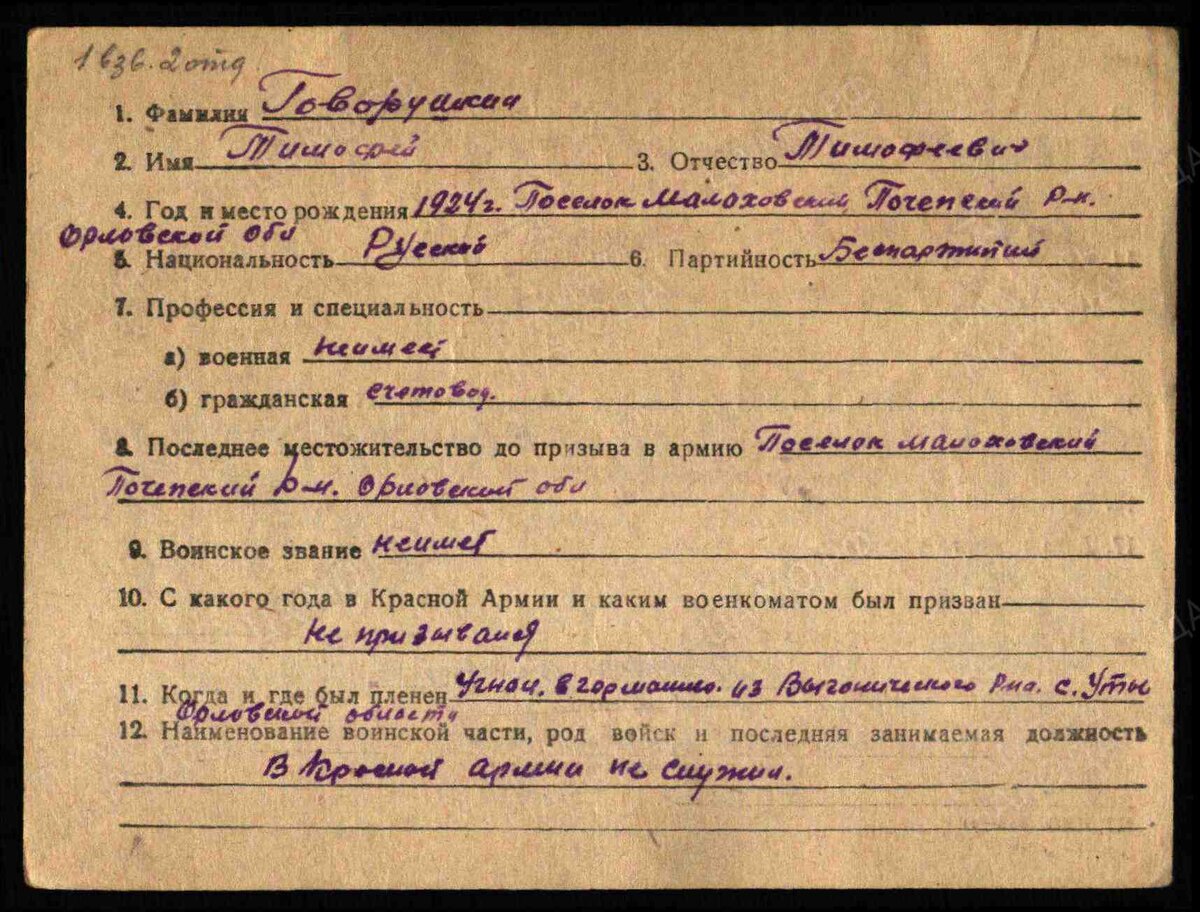 1 взв. 2 отд
1. Фамилия Говорушкин
2. Имя Тимофей 3. Отчество Тимофеевич
4. Год и место рождения 1924 г. Поселок Малаховский Почепский р-н.
Орловской обл
5. Национальность Русский 6. Партийность Беспартийный
7. Профессия и специальность
а) военная неимеет
б) гражданская счетовод.
8. Последнее местожительство до призыва в армию Поселок малаховский
Почепский р-н. Орловской обл
9. Воинское звание неимеет
10. С какого года в Красной Армии и каким военкоматом был призван
Не призывался
11. Когда и где был пленен Угнан. в германию. из Выгонического р-на. с. Уты
Орловской области
12. Наименование воинской части, род войск и последняя занимаемая должность
В Красной армии не служил.